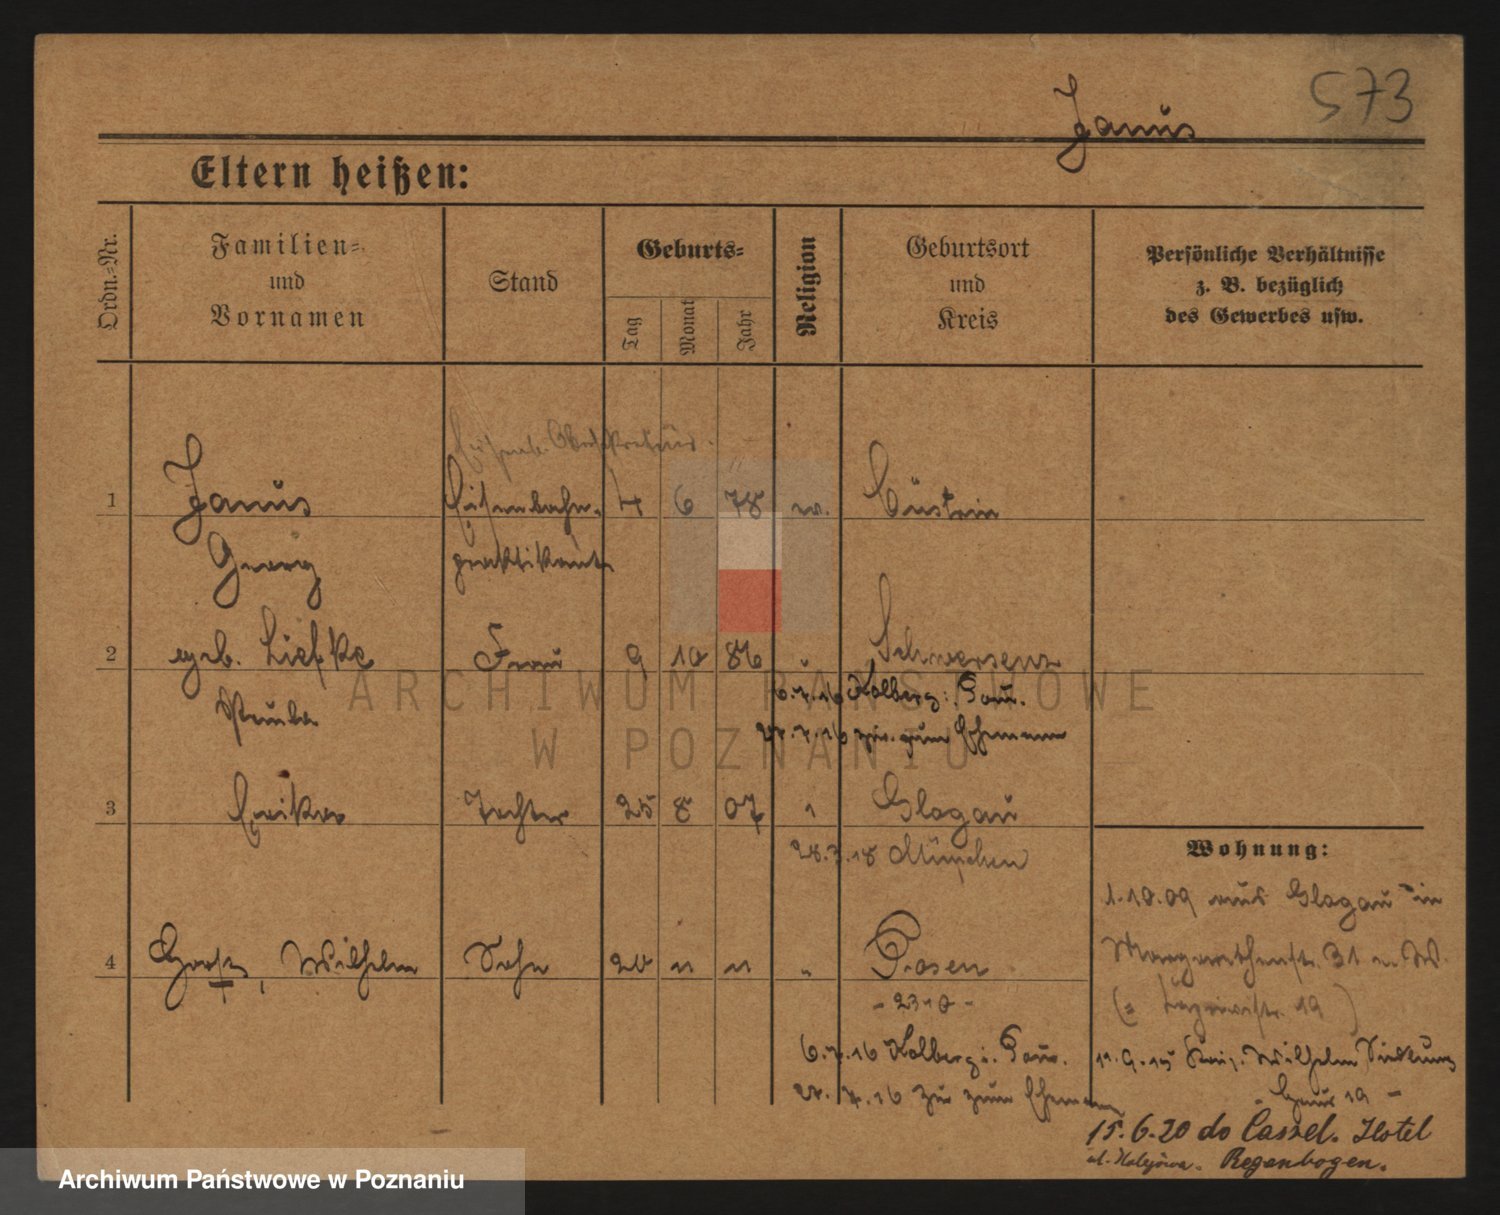 573
Janus
Eltern heißen:
Ordn.-Nr.
Familien-
und
Vornamen
Stand
Geburts-
Tag
Monat
Jahr
Religion
Geburtsort
und
Kreis
Persönliche Verhältnisse
z. B. bezüglich
des Gewerbes usw.
1 Janus Eisenbahn- 4 6 78 ev. Cüstrin
Georg praktikant
2 geb. Liefke Frau 9 10 86 " Schwersenz
6.7.16 Kolberg i. Pom.
27.7.16 zur. zum Ehemann
3 Erika Tochter 25 8 07 " Glogau
28.7.18 München
Wohnung:
1.10.09 aus Glogau in
4 Horst, Wilhelm Sohn 20 11 11 " Posen
Margarethenstr. 31 a. W.
- 2310 -
19
6.7.16 Kolberg i. Pom.
11.9.15 Wilhelm Siedlung
27.7.16 zur zum Ehemann
Haus 19 -
15.6.20 do Cassel. Hotel
ul. Kolejowa. Regenbogen.
ARCHIWUM PAŃSTWOWE
W POZNANIU
Archiwum Państwowe w Poznaniu